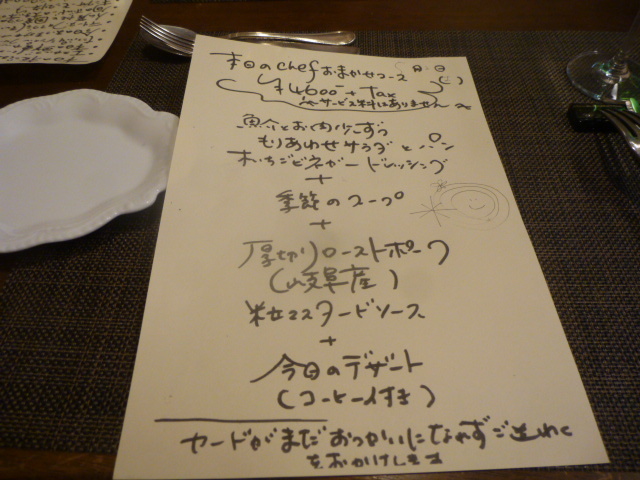 本日のchefおまかせコース
月 日( )
¥4600-+Tax
サービス料はありません
魚介とお肉少しずつ
もりあわせサラダとパン
いちごビネガードレッシング
+
季節のスープ
+
厚切りローストポーク
(岐阜産)
粒マスタードソース
+
今日のデザート
(コーヒー付き)
カードがまだおつかいになれずご迷わく
をおかけします